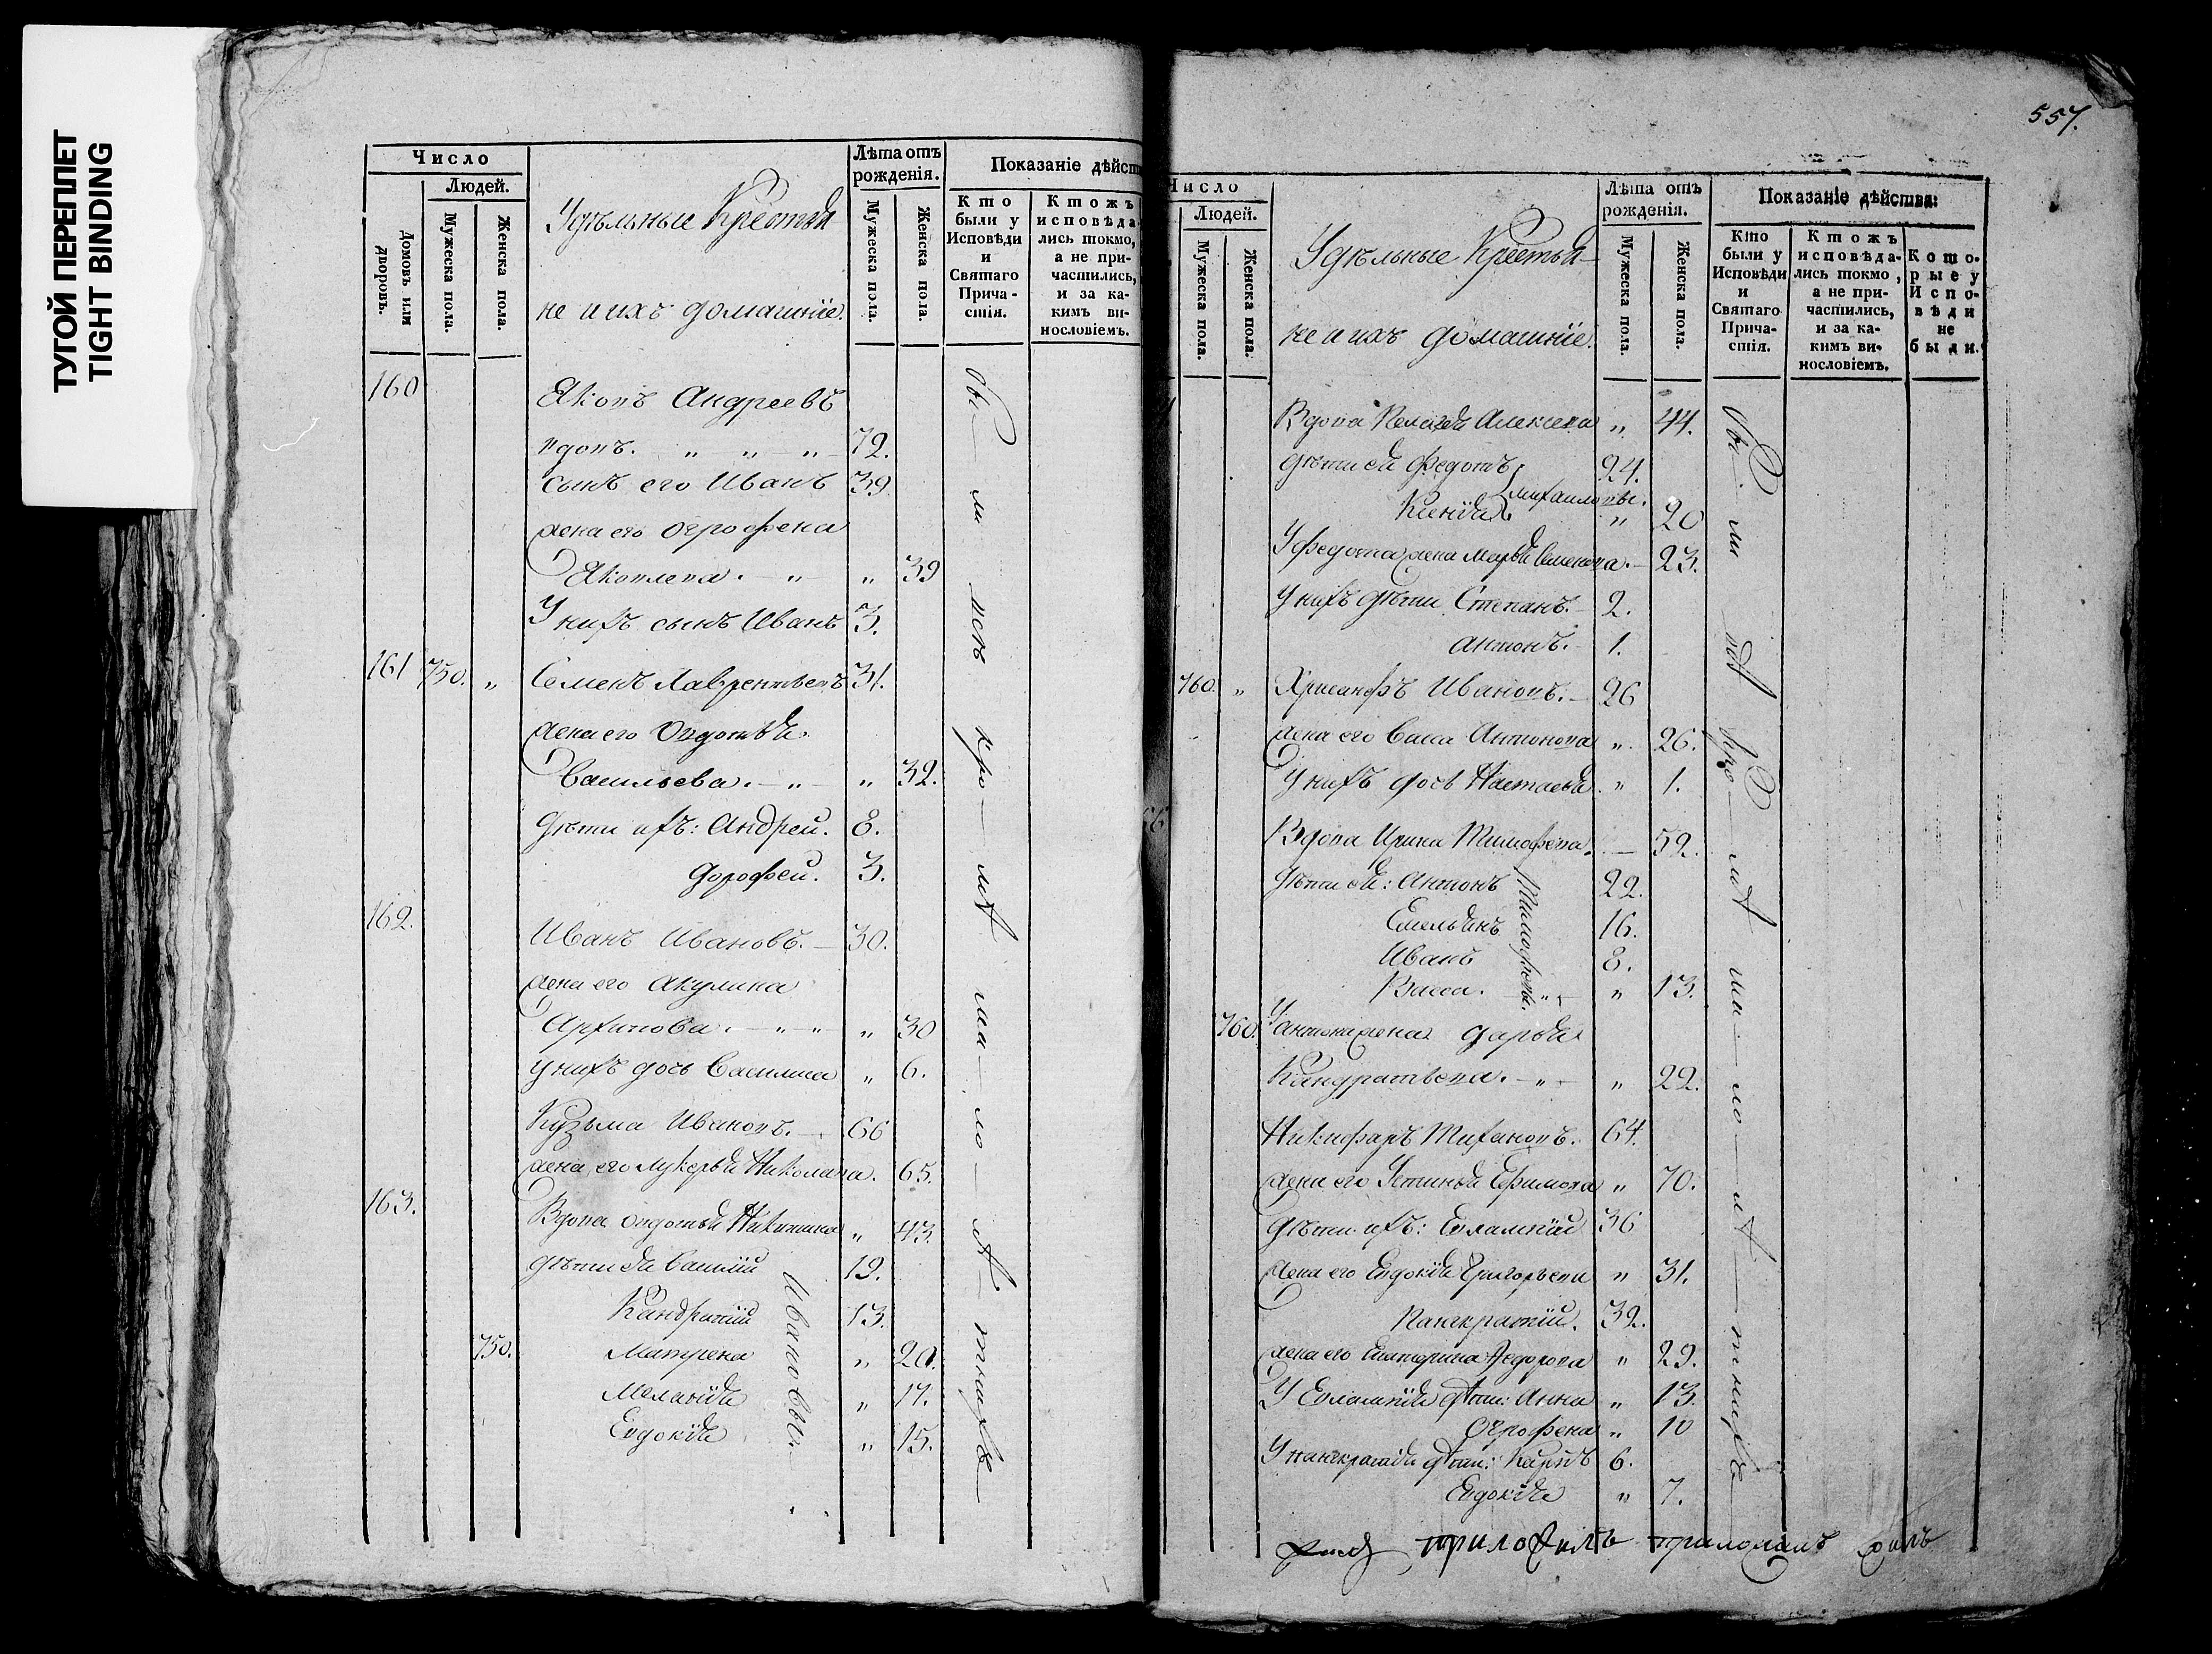 ТУГОЙ ПЕРЕПЛЕТ
TIGHT BINDING
Число
Людей.
Домовъ или дворовъ.
Мужеска пола.
Женска пола.
Удѣльные Крестья
не и ихъ домашніе.
Лѣта отъ рожденія.
Мужеска пола.
Женска пола.
Показаніе дѣйст
Кто были у Исповѣди и Святаго Причастія.
Ктожъ исповѣдались токмо, а не причастились, и за какимъ винословіемъ.
160 Яковъ Андреевъ
вдовъ. „ „ „ 72.
сынъ его Иванъ 39
жена его Огрофена
Яковлева. „ „ 39
У нихъ сынъ Иванъ 3.
161 750. „ Семенъ Лаврентьевъ 31.
жена его Овдотья
Васильева. „ „ 32.
дѣти ихъ: Андрей. 8.
Дорофей. 3.
162. Иванъ Ивановъ. 30.
жена его Акулина
Архипова. „ „ „ 30
у нихъ дочь Василиса „ 6.
Кузьма Ивановъ. 66
жена его Лукерья Николаева. 65.
163. Вдова Овдотья Никитина „ 43.
дѣти ея Василій 19.
Кандратій 13.
750. Матрена „ 20.
Меланія „ 17.
Евдокія „ 15.
Ивановы.
бы ли исп
557.
Число
Людей.
Мужеска пола.
Женска пола.
Удѣльные Крестья-
не и ихъ домашніе.
Лѣта отъ рожденія.
Мужеска пола.
Женска пола.
Показаніе дѣйства:
Кто были у Исповѣди и Святаго Причастія.
Ктожъ исповѣдались токмо, а не причастились, и за какимъ винословіемъ.
Которые у Исповѣди не были.
Вдова Пелагея Алексева „ 44.
дѣти ея Федотъ 24.
Михаиловы.
Ксенія „ 20
У Федота жена Марья Семенова. 23.
У нихъ дѣти Степанъ. 2.
Антонъ. 1.
760. „ Хрисанфъ Ивановъ. 26
жена его Васса Антонова „ 26.
У нихъ дочь Настасья „ 1.
Вдова Ирина Тимофева. 52.
дѣти ея: Антонъ 22.
Емельянъ 16.
Иванъ 8.
Васса. „ „ 13.
Тимофеевы.
760. У Антона жена Дарья
Кандратьева. „ „ 22.
Никифаръ Тихановъ. 64.
жена его Устинья Ефимова „ 70.
дѣти ихъ: Евлампій 36
жена его Евдокія Григорьева „ 31.
Панкратій. 32.
жена его Екатерина Федорова „ 29.
У Евлампія дѣти: Анна „ 13.
Огрофена „ 10
У Панкратія дѣти: Карпъ 6.
Евдокія „ 7.
бы ли